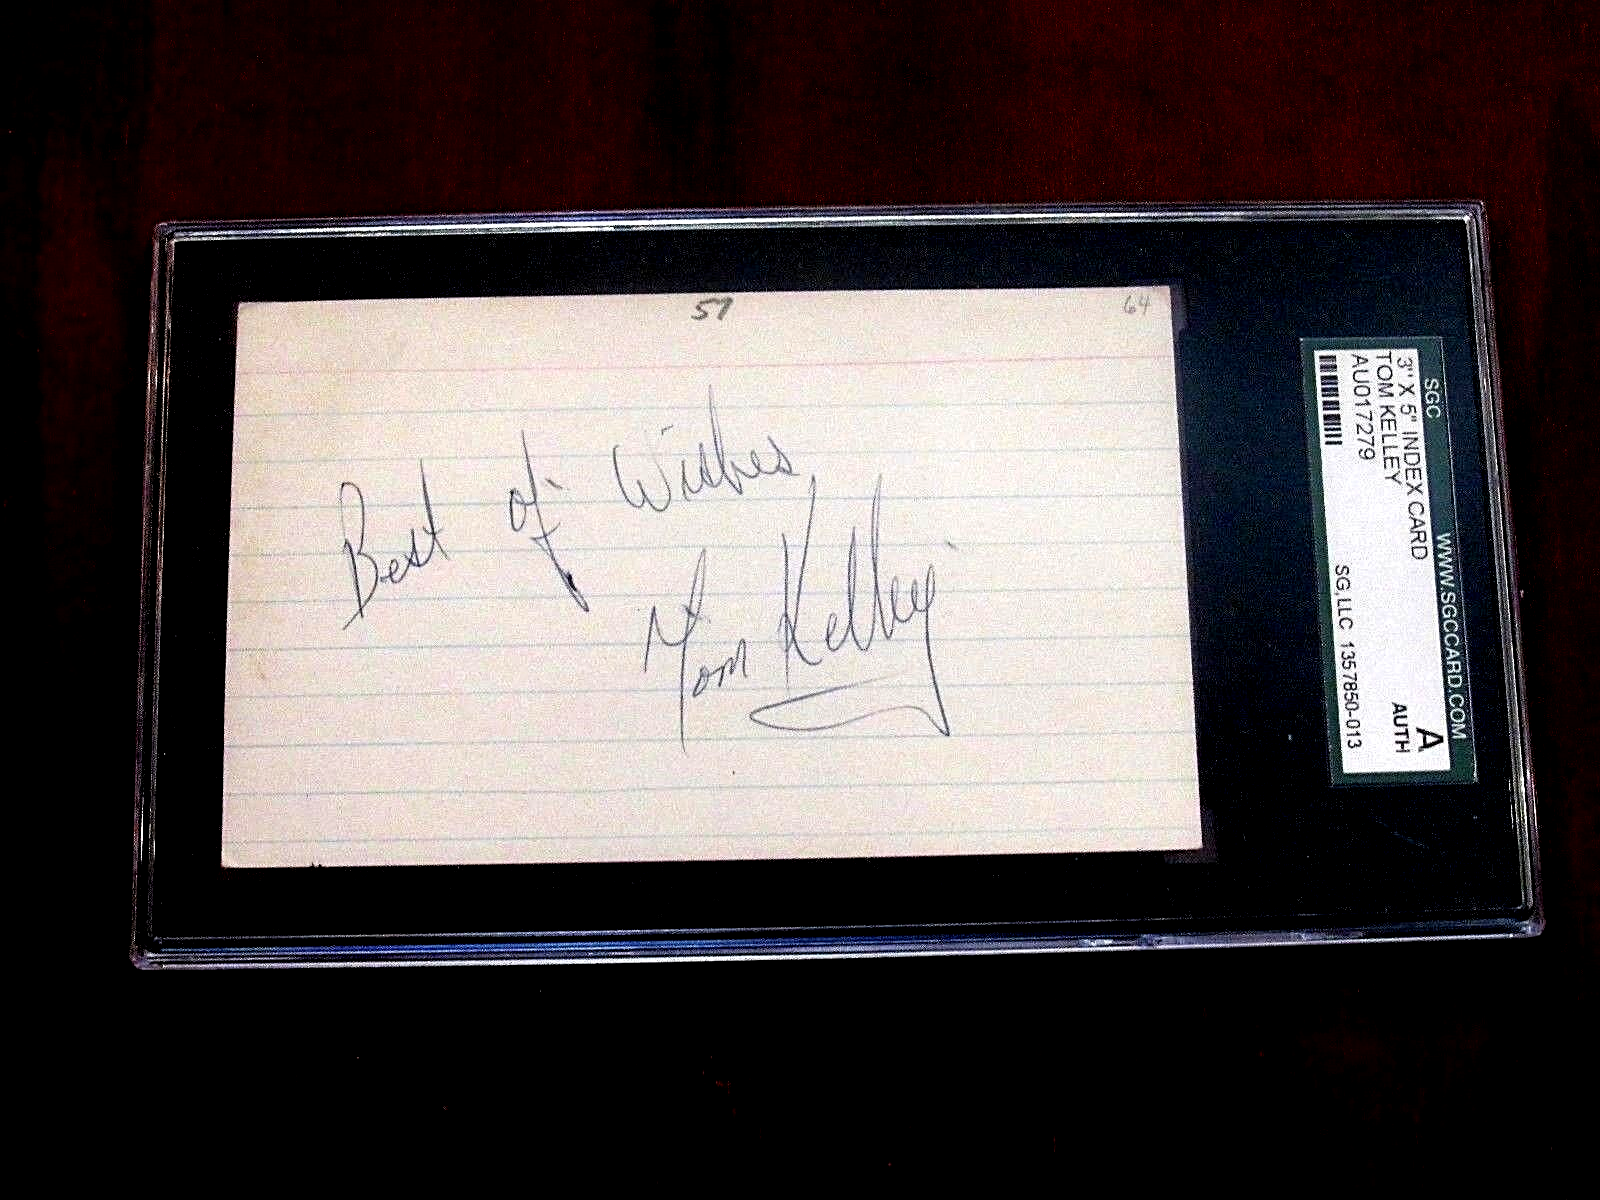 57
64
Best of Wishes
Tom Kelley
SGC WWW.SGCCARD.COM
3" X 5" INDEX CARD
TOM KELLEY
AU017279
A
AUTH
SG, LLC 1357850-013